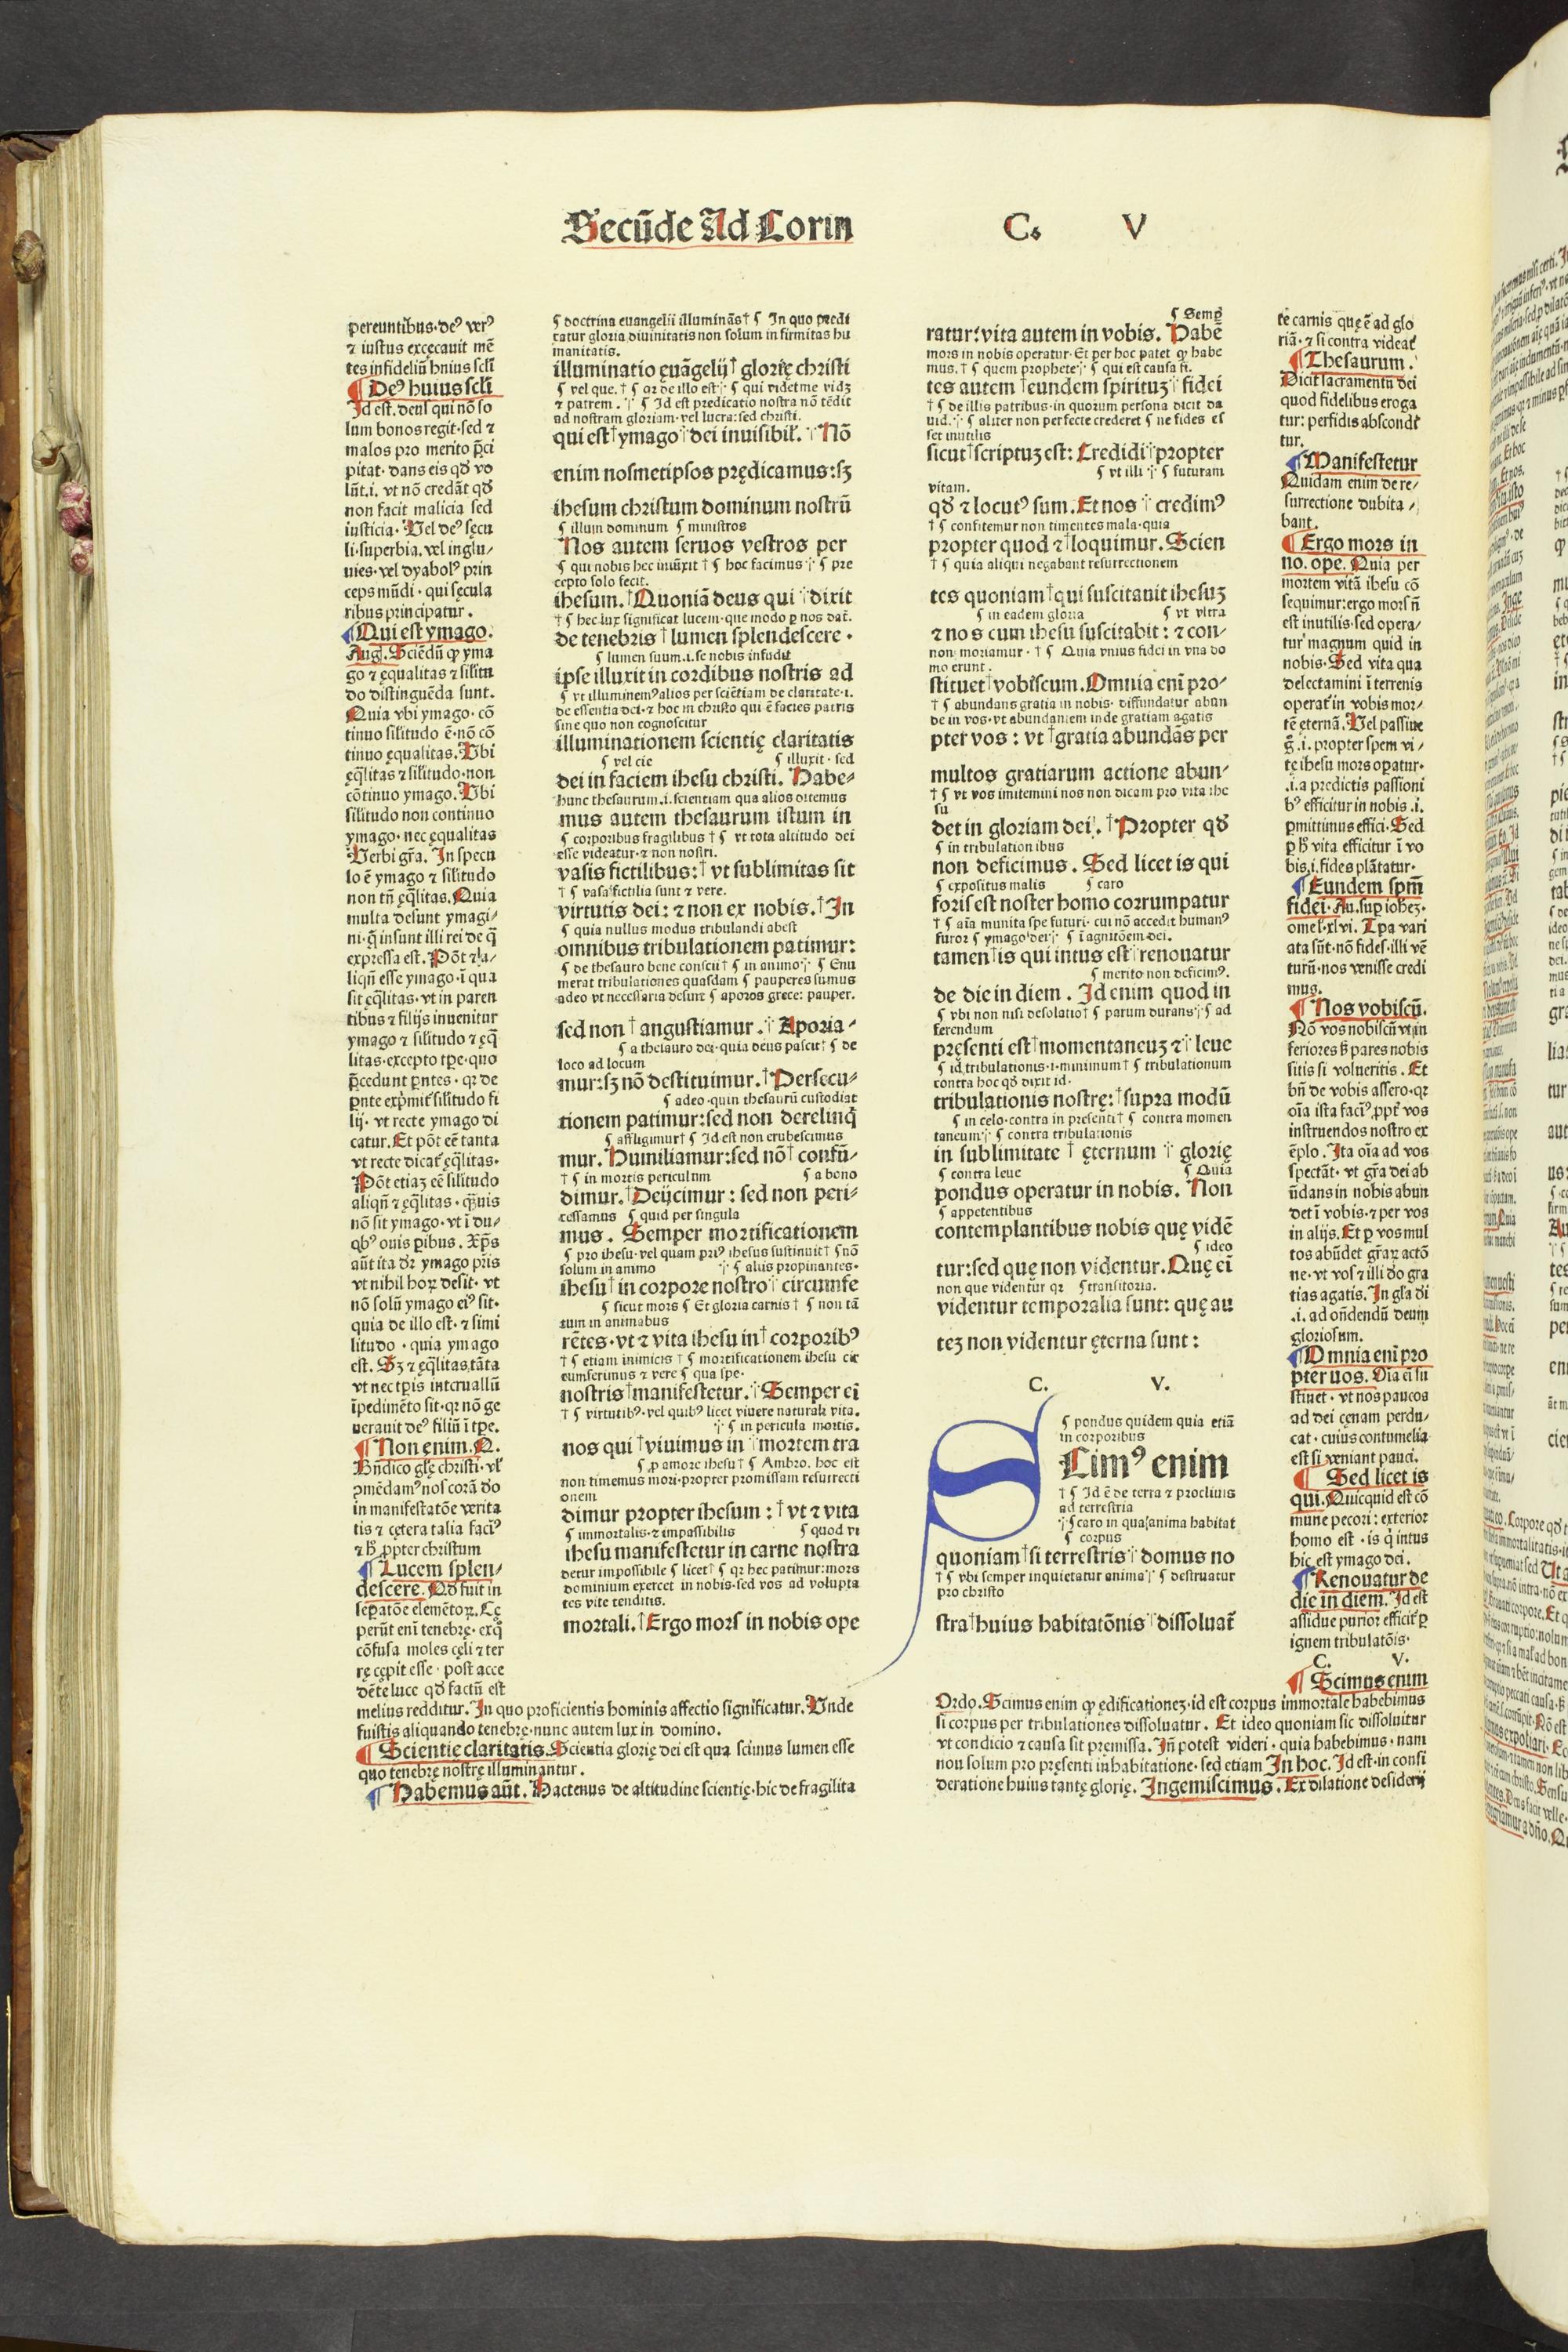 Secūde Ad Corin
C. V
pereuntibus·deꝰ verꝰ
⁊ iustus excęcauit mē
tes infideliū huius scl̄i
¶ Deꝰ huius scl̄i
Id est. deus qui nō so
lum bonos regit·sed ⁊
malos pro merito p̄ci
pitat·dans eis qđ vo
lūt.i. vt nō credāt qđ
non facit malicia sed
iusticia· Vel deꝰ sęcu
li·superbia. vel inglu/
uies·vel dyabolꝰ prin
ceps mūdi·qui sęcula
ribus principatur.
¶ Qui est ymago.
Aug. Sciēdū ꝙ yma
go ⁊ ęqualitas ⁊ silitu
do distinguēda sunt.
Quia vbi ymago·cō
tinuo silitudo ē·nō cō
tinuo ęqualitas. Vbi
ęq̄litas ⁊ silitudo·non
cōtinuo ymago. Vbi
silitudo non continuo
ymago·nec ęqualitas
Verbi gr̄a. In specu
lo ē ymago ⁊ silitudo
non tn̄ ęq̄litas. Quia
multa desunt ymagi/
ni·q̄ insunt illi rei de q̄
expressa est. Pōt ⁊ a/
liqn̄ esse ymago·ī qua
sit ęq̄litas·vt in paren
tibus ⁊ filijs inuenitur
ymago ⁊ silitudo ⁊ ęq̄
litas·excepto tp̄e·quo
p̄cedunt p̄ntes·qꝛ de
p̄nte exp̄mit̄ silitudo fi
lij·vt recte ymago di
catur. Et pōt eē tanta
vt recte dicat̄ ęq̄litas·
Pōt etiaʒ eē silitudo
aliqn̄ ⁊ ęq̄litas·q̄uis
nō sit ymago·vt ī du/
qbꝰ ouis paribus. Xp̄s
aūt ita dꝛ ymago pr̄is
vt nihil hoꝝ desit·vt
nō solū ymago eiꝰ sit·
quia de illo est·⁊ simi
litudo·quia ymago
est. Sʒ ⁊ ęq̄litas tāta
vt nec tp̄is interuallū
īpedimēto sit·qꝛ nō ge
nerauit deꝰ filiū ī tp̄e.
¶ Non enim.
Bn̄dico glę christi·vl̄
ꝯmēdamꝰ nos corā do
in manifestatōe verita
tis ⁊ cętera talia facīꝰ
⁊ h̄ ꝓpter christum
¶ Lucem splen/
descere. Qđ fuit in
sepatōe elemētoꝝ. Cę
perūt eni tenebrę·exq̄
cōfusa moles cęli ⁊ ter
rę cępit esse·post acce
dēte luce qđ factū est
melius redditur. In quo proficientis hominis affectio significatur. Vnde
fuistis aliquando tenebrę·nunc autem lux in domino.
¶ Scientię claritatis. Scientia glorię dei est qua scimus lumen esse
quo tenebrę nostrę illuminantur.
¶ Habemus aūt. Hactenus de altitudine scientię·hic de fragilita
¶ doctrina euangelii illuminās† ¶ In quo predi
catur gloria diuinitatis non solum infirmitas hu
manitatis.
illuminatio ęuāgelij† glorię christi
¶ vel que.† ¶ qꝛ de illo est ¶ qui videt me videʒ
⁊ patrem. ¶ Id est predicatio nostra nō tēdit
ad nostram gloriam·vel lucra: sed christi.
qui est†ymago dei inuisibil̄. Nō
enim nosmetipsos prędicamus:sʒ
ihesum christum dominum nostrū
¶ illum dominum ¶ ministros
Nos autem seruos vestros per
¶ qui nobis hec iniūxit † ¶ hoc facimus ¶ pre
cepto solo fecit.
ihesum.†Quoniā deus qui dixit
† ¶ hec lux significat lucem·que modo ꝑ nos dat̄.
de tenebris†lumen splendescere·
¶ lumen suum.i.se nobis infudit
ipse illuxit in cordibus nostris ad
¶ vt illuminemꝰ alios per sciētiam de claritate·i.
de essentia dei·⁊ hoc in christo qui ē facies patris
sine quo non cognoscitur
illuminationem scientię claritatis
¶ vel cie ¶ illuxit·sed
dei in faciem ihesu christi. Habe-
hunc thesaurum.i.scientiam qua alios ditemus
mus autem thesaurum istum in
¶ corporibus fragilibus † ¶ vt tota altitudo dei
esse videatur·⁊ non nostri.
vasis fictilibus:†vt sublimitas sit
† ¶ vasa fictilia sunt ⁊ vere.
virtutis dei: ⁊ non ex nobis.†In
¶ quia nullus modus tribulandi abest
omnibus tribulationem patimur:
¶ de thesauro bene conscii† ¶ in animo ¶ Enu
merat tribulationes quasdam ¶ pauperes sumus
adeo vt necessaria desint ¶ aporos grece: pauper.
sed non†angustiamur. Aporia-
¶ a thesauro dei·quia deus pascit† ¶ de
loco ad locum
mur:sʒ nō destituimur.†Persecu-
¶ adeo·quin thesaurū custodiat
tionem patimur:sed non derelinq̄
¶ affligimur† ¶ Id est non erubescimus
mur. Humiliamur:sed nō†confū-
† ¶ in mortis periculum ¶ a bono
dimur.†Deijcimur: sed non peri-
cessamus ¶ quid per singula
mus. Semper mortificationem
¶ pro ihesu·vel quam priꝰ ihesus sustinuit† ¶ nō
solum in animo ¶ aliis propinantes·
ihesu†in corpore nostro circumfe
¶ sicut mors ¶ Et gloria carnis† ¶ non tā
tum in animabus
rētes·vt ⁊ vita ihesu in†corporibꝰ
† ¶ etiam inimicis † ¶ mortificationem ihesu cir
cumferimus ⁊ vere ¶ qua spe·
nostris†manifestetur. Semper eī
† ¶ virtutibꝰ·vel quibꝰ licet viuere naturali vita.
¶ in pericula mortis.
nos qui†viuimus in mortem tra
¶ ꝓ amore ihesu† ¶ Ambro. hoc est
non timemus mori·propter promissam resurrecti
onem
dimur propter ihesum:†vt ⁊ vita
¶ immortalis·⁊ impassibilis ¶ quod vi
ihesu manifestetur in carne nostra
detur impossibile ¶ licet† ¶ qꝛ hec patimur: mors
dominium exercet in nobis·sed vos ad volupta
tes vite tenditis.
mortali.†Ergo mors in nobis ope
¶ Semꝑ
ratur: vita autem in vobis. Habē
mors in nobis operatur·Et per hoc patet ꝙ habe
mus. † ¶ quem prophete ¶ qui est causa fi.
tes autem†eundem spirituʒ fidei
† ¶ de illis patribus·in quorum persona dicit da
uid. ¶ aliter non perfecte crederet ¶ ne fides es
set inutilis
sicut†scriptuʒ est: Credidi propter
¶ vt illi ¶ futuram
vitam.
qđ ⁊ locutꝰ sum. Et nos credimꝰ
† ¶ confitemur non timentes mala·quia
propter quod ⁊†loquimur. Scien
† ¶ quia aliqui negabant resurrectionem
tes quoniam†qui suscitauit ihesuʒ
¶ in eadem gloria ¶ vt vltra
⁊ nos cum ihesu suscitabit: ⁊ con-
non moriamur·† ¶ Quia vnius fidei in vna do
mo erunt.
stituet†vobiscum. Omnia enī pro-
† ¶ abundans gratia in nobis·diffundatur abun
de in vos·vt abundantem inde gratiam agatis
pter vos: vt†gratia abundās per
multos gratiarum actione abun-
† ¶ vt vos imitemini nos non dicam pro vita ihe
su
det in gloriam dei.†Propter qđ
¶ in tribulationibus
non deficimus. Sed licet is qui
¶ expositus malis ¶ caro
foris est noster homo corrumpatur
† ¶ aīa munita spe futuri·cui nō accedit humanꝰ
furor ¶ ymago dei ¶ ī agnitōem dei.
tamen†is qui intus est†renouatur
¶ merito non deficimꝰ.
de die in diem. Id enim quod in
¶ vbi non nisi desolatio† ¶ parum durans ¶ ad
ferendum
pręsenti est†momentaneuʒ ⁊ leue
¶ id. tribulationis·i·minimum† ¶ tribulationum
contra hoc qđ dixit id·
tribulationis nostrę:†supra modū
¶ in celo·contra in presenti† ¶ contra momen
taneum ¶ contra tribulationis
in sublimitate † ęternum glorię
¶ contra leue ¶ Quia
pondus operatur in nobis. Non
¶ appetentibus
contemplantibus nobis quę vidē
¶ ideo
tur:sed quę non videntur. Quę eī
non que videntur qꝛ ¶ transitoria.
videntur temporalia sunt: quę au
teʒ non videntur ęterna sunt:
C. V.
¶ pondus quidem quia etiā
in corporibus
SCimꝰ enim
† ¶ Id ē de terra ⁊ procliuis
ad terrestria
¶ caro in qua anima habitat
¶ corpus
quoniam†si terrestris domus no
† ¶ vbi semper inquietatur anima ¶ destruatur
pro christo
stra†huius habitatōnis dissoluat̄
te carnis quę ē ad glo
riā·⁊ si contra videat̄
¶ Thesaurum.
Dicit sacramentū dei
quod fidelibus eroga
tur: perfidis abscondi
tur.
¶ Manifestetur
Quidam enim de re/
surrectione dubita/
bant.
¶ Ergo mors in
no. ope. Quia per
mortem vitā ihesu cō
sequimur: ergo mors n̄
est inutilis·sed opera/
tur magnum quid in
nobis· Sed vita qua
delectamini ī terrenis
operat̄ in vobis mor/
tē eternā. Vel passiue
g̃.i. propter spem vi/
tę ihesu mors operatur·
.i.a predictis passioni
bꝰ efficitur in nobis.i.
ꝑmittimus effici. Sed
ꝑ h̄ vita efficitur ī vo
bis.i. fides plātatur·
¶ Eundem spm̄
fidei. Au. sup̄ iohēʒ.
omel. xlvi. Tp̄a vari
ata sūt·nō fides·illi vē
turū·nos venisse credi
mus.
¶ Nos vobiscū.
Nō vos nobiscū vt in
feriores h̄ pares nobis
sitis si volueritis. Et
bn̄ de vobis assero·qꝛ
oīa ista facīꝰ ꝓpt̄ vos
instruendos nostro ex
ēplo. Ita oīa ad vos
spectāt·vt gr̄a dei ab
ūdans in nobis abun
det ī vobis·⁊ per vos
in alijs. Et ꝑ vos mul
tos abūdet gr̄aꝝ actō
ne·vt vos ⁊ illi do gra
tias agatis. In gl̄a di
.i. ad on̄dendū deum
gloriosum.
¶ Omnia enī pro
pter uos. Oīa eī su
stinet·vt nos paucos
ad dei cęnam perdu/
cat·cuius contumelia
est si veniant pauci.
¶ Sed licet is
qui. Quicquid est cō
mune pecori: exterior
homo est·is q̄ intus
hic est ymago dei.
¶ Renouatur de
die in diem. Id est
assidue purior efficit̄ ꝑ
ignem tribulatōis·
C. V.
¶ Scimus enim
Ordo. Scimus enim ꝙ ędificationeʒ·id est corpus immortale habebimus
si corpus per tribulationes dissoluatur. Et ideo quoniam sic dissoluitur
vt condicio ⁊ causa sit premissa. In̄ potest videri·quia habebimus·nam
non solum pro pręsenti inhabitatione·sed etiam In hoc. Id est·in consi
deratione huius tantę glorię. Ingemiscimus. Ex dilatione desiderij